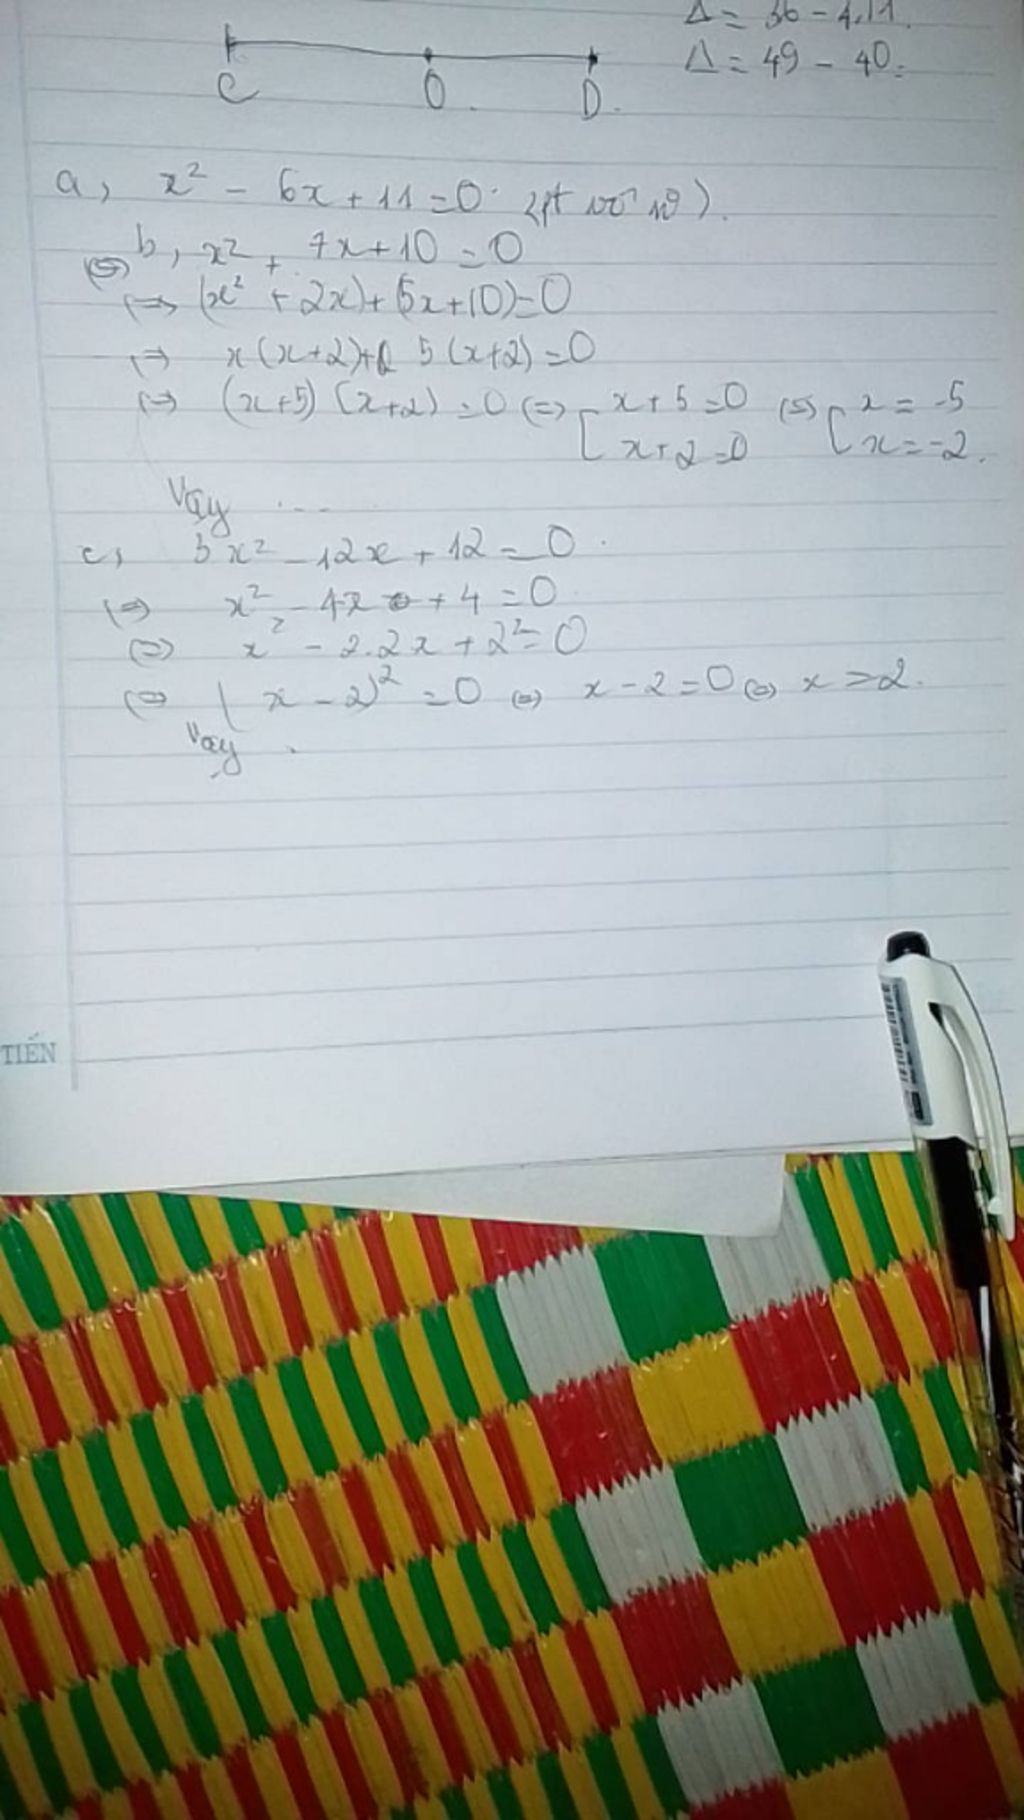 Δ = 36 - 4.11.
Δ = 49 - 40 =
C O D.
a, x² - 6x + 11 = 0. (pt vô n⁰).
b, x² + 7x + 10 = 0
⇔ (x² + 2x) + (5x + 10) = 0
⇔ x(x+2) + 5(x+2) = 0
⇔ (x+5)(x+2) = 0 ⇔ [x + 5 = 0 ⇔ [x = -5
x + 2 = 0 x = -2.
Vậy ...
c, 3x² - 12x + 12 = 0.
⇔ x² - 4x + 4 = 0.
⇔ x² - 2.2x + 2² = 0
⇔ (x - 2)² = 0 ⇔ x - 2 = 0 ⇔ x = 2.
Vậy .
TIẾN